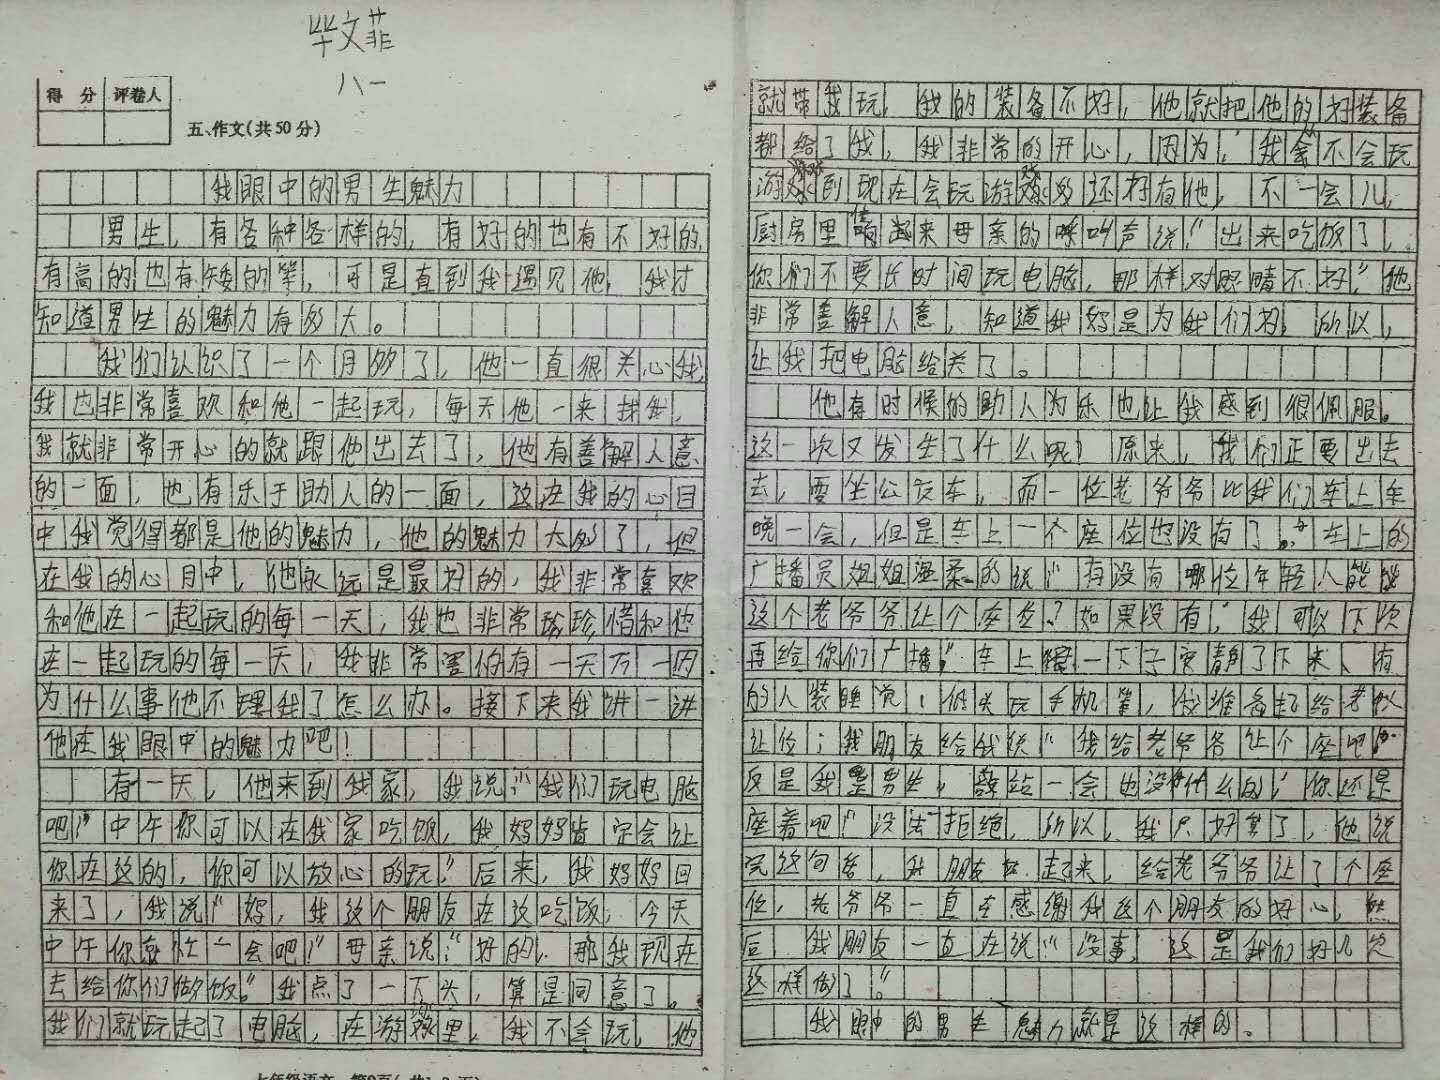 毕文菲
八一
得 分 评卷人
五、作文(共50分)
我眼中的男生魅力
男生,有各种各样的,有好的也有不好的,
有高的也有矮的等,可是直到我遇见他,我才
知道男生的魅力有多大。
我们认识了一个月多了,他一直很关心我,
我也非常喜欢和他一起玩,每天他一来找我,
我就非常开心的就跟他出去了,他有善解人意
的一面,也有乐于助人的一面,这在我的心目
中我觉得都是他的魅力,他的魅力太多了,但
在我的心目中,他永远是最好的,我非常喜欢
和他在一起玩的每一天,我也非常珍珍惜和他
在一起玩的每一天,我非常害怕有一天万一因
为什么事他不理我了怎么办。接下来我讲一讲
他在我眼中的魅力吧!
有一天,他来到我家,我说:“我们玩电脑
吧!”中午你可以在我家吃饭,我妈妈肯定会让
你在这的,你可以放心的玩。”后来,我妈妈回
来了,我说:“妈,我这个朋友在这吃饭,今天
中午你就忙一会吧!”母亲说:“好的,那我现在
去给你们做饭。”我点了一下头,算是同意了。
我们就玩起了电脑,在游戏里,我不会玩,他
就带我玩,我的装备不好,他就把他的好装备
都给了我,我非常的开心,因为,“我不会玩
游戏到现在会玩游戏多还好有他,不一会儿,
厨房里响起来母亲的呼叫声说:“出来吃饭了,
你们不要长时间玩电脑,那样对眼睛不好,”他
非常善解人意,知道我妈是为我们好,所以,
让我把电脑给关了。
他有时候的助人为乐也让我感到很佩服。
这一次又发生了什么呢?原来,我们正要出去
去,要坐公交车,而一位老爷爷比我们车上车
晚一会,但是车上一个座位也没有了,车上的
广播员姐姐温柔的说:“有没有哪位年轻人能给
这个老爷爷让个座位?如果没有,我可以下次
再给你们广播,”车上一下子安静了下来、有
的人装睡觉,低头玩手机等,我准备起给老以
让位;我朋友给我说“我给老爷爷让个座吧”
反是我是男生,站一会也没有什么的,你还是
座着吧!”没法拒绝,所以,我只好算了,他说
完这句话,我朋友 起来,给老爷爷让了个座
位,老爷爷一直在感谢我这个朋友的好心,然
后 我朋友一直在说:“没事,这是我们好几次
这样做了。”
我眼中的男生魅力就是这样的。